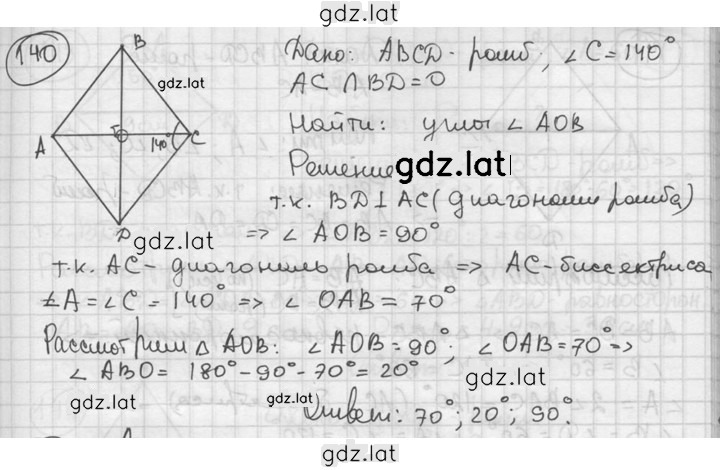 gdz.lat
140
B
gdz.lat
A
O
140°
C
D
gdz.lat
Дано: ABCD - ромб, ∠C = 140°
AC ∩ BD = O
Найти: углы ∠ AOB
Решение
gdz.lat
т.к. BD ⊥ AC (диагонали ромба)
=> ∠ AOB = 90°
т.к. AC - диагональ ромба => AC - биссектриса
∠A = ∠C = 140° => ∠ OAB = 70°
Рассмотрим △ AOB: ∠AOB = 90°; ∠OAB = 70° =>
∠ ABO = 180° - 90° - 70° = 20°
gdz.lat
Ответ: 70°; 20°; 90°.
gdz.lat